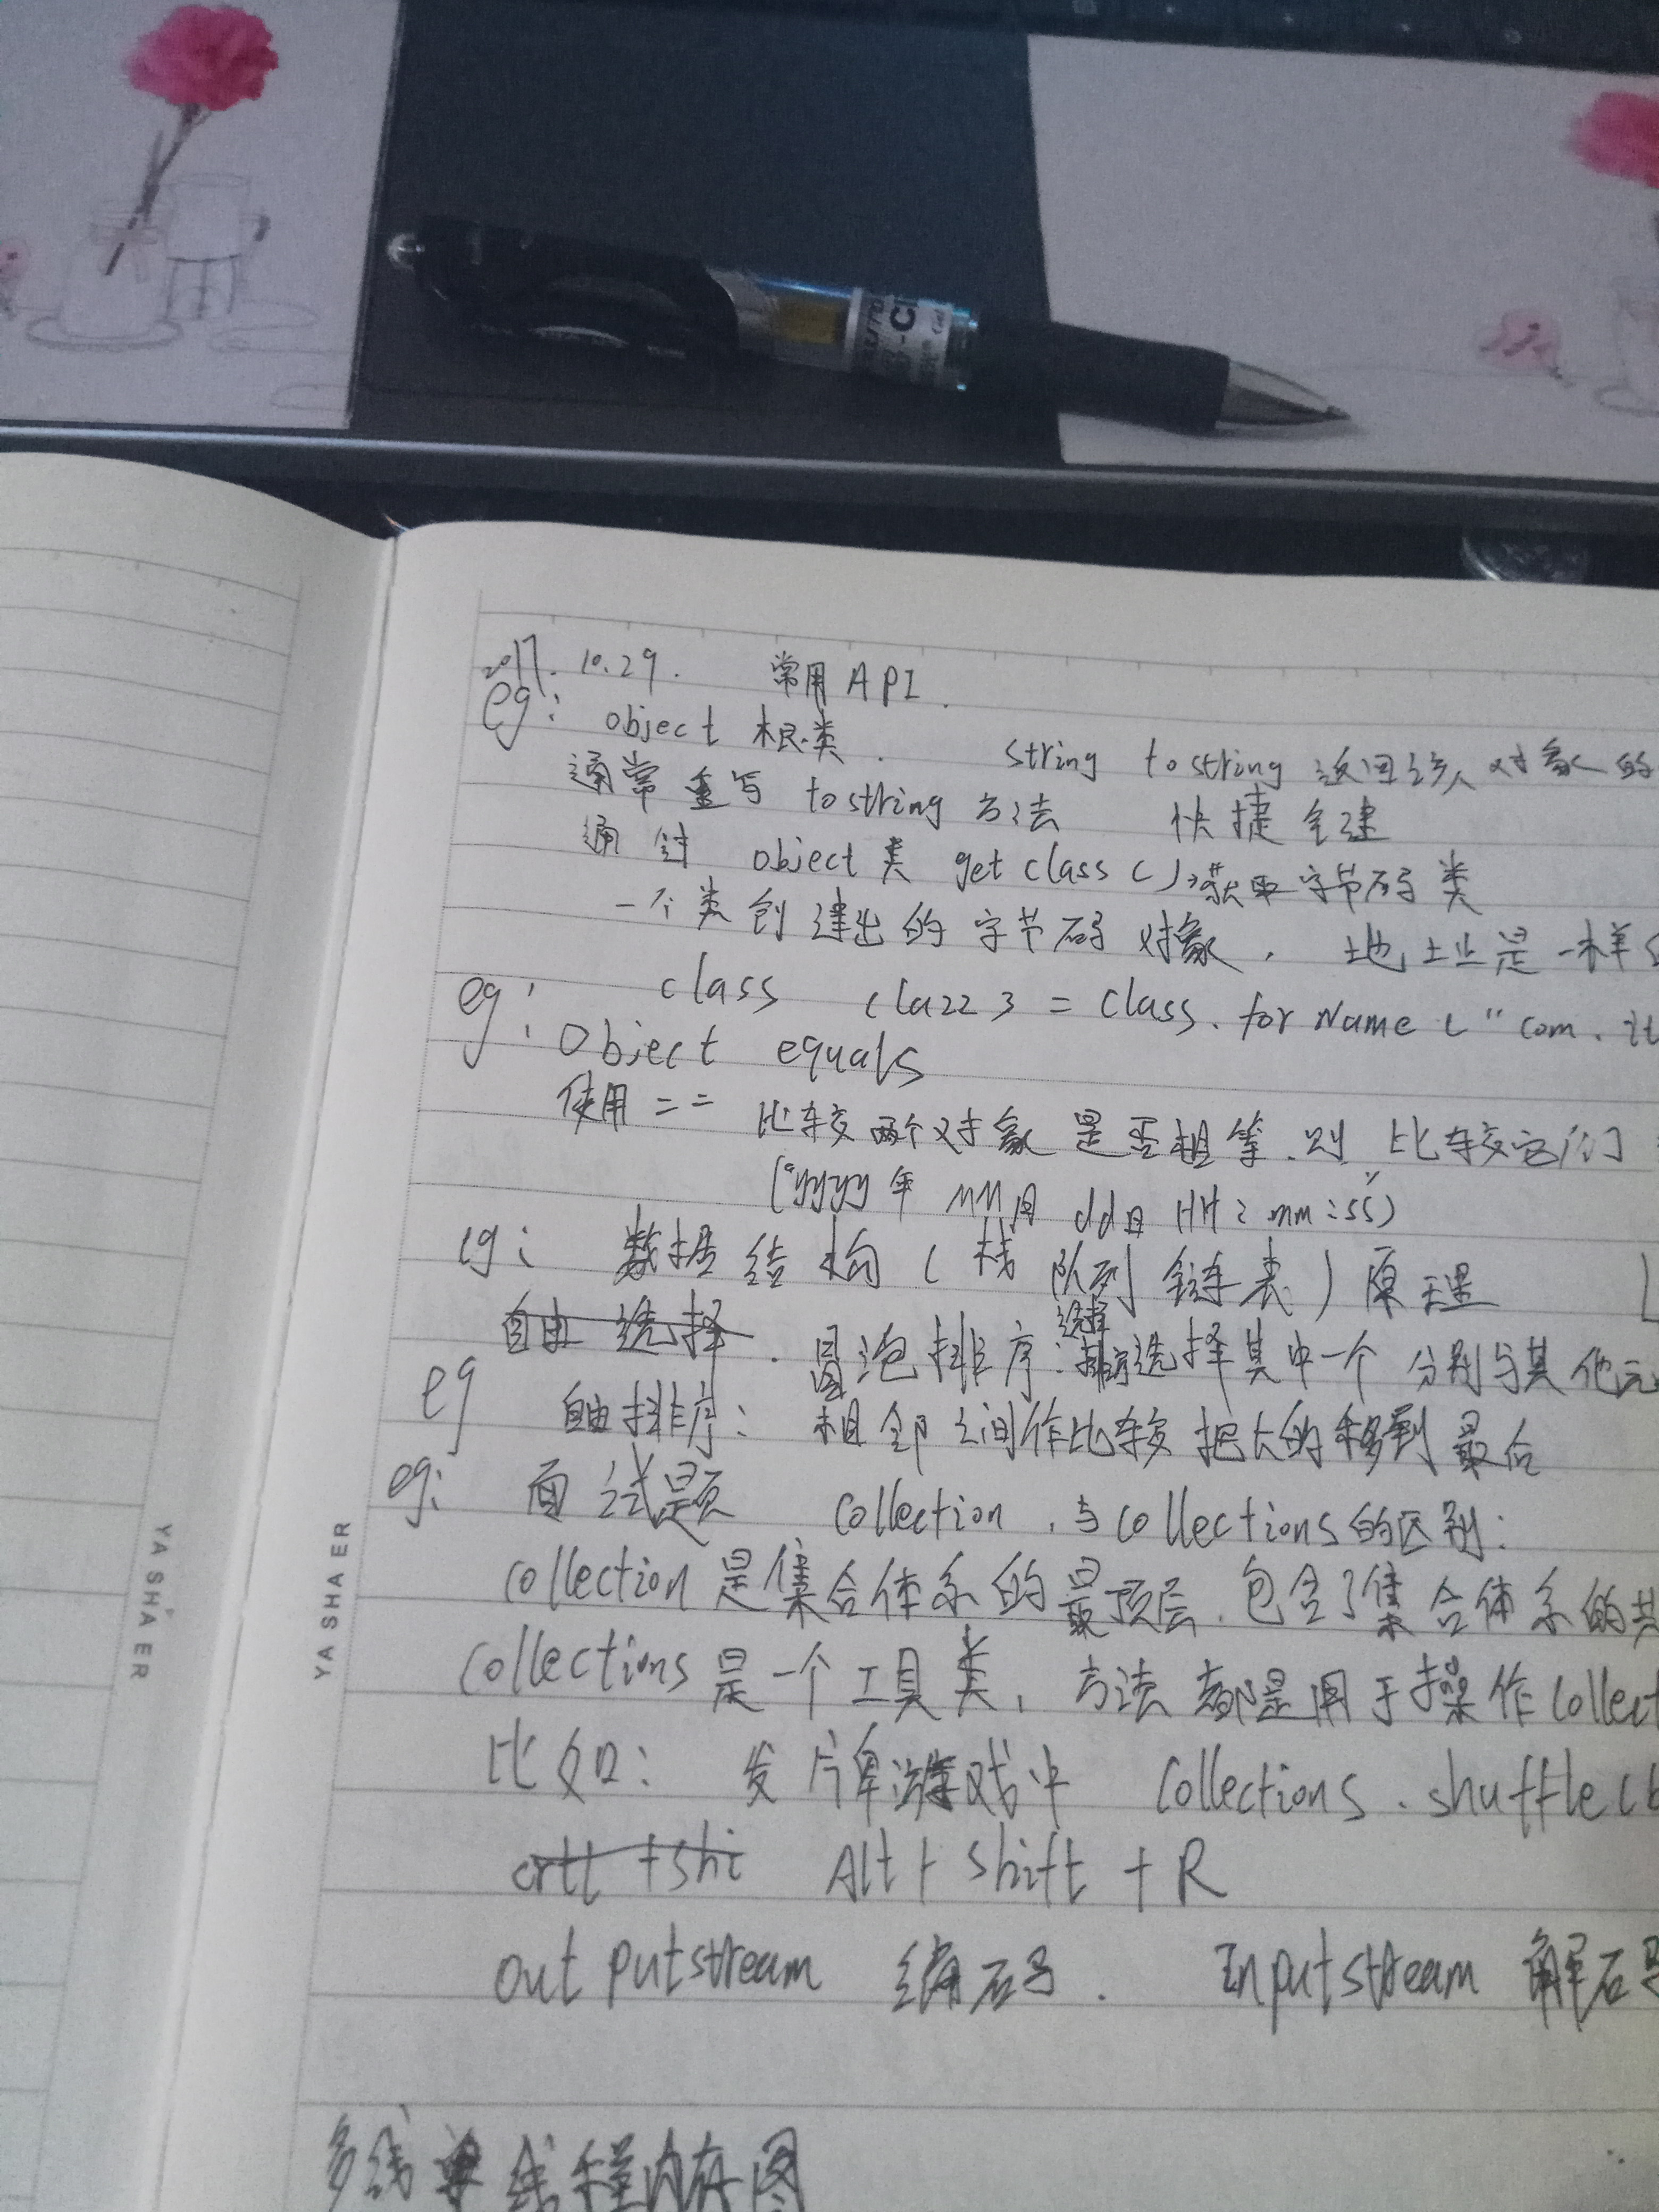 2017.10.29. 常用API.
eg: object 根类. string tostring 返回该对象的
通常重写 tostring 方法 快捷创建
通过 object类 getclass()获取字节码类
一个类创建出的字节码对象, 地址是一样
class clazz3 = Class.forName("com.it
eg: Object equals
使用 == 比较两个对象是否相等.则 比较它们
("yyyy年MM月dd日 HH:mm:ss")
eg: 数据结构(栈 队列 链表)原理
自由选择. 冒泡排序: 选择排序选择其中一个 分别与其他元
eg 自由排序: 相邻之间作比较把大的移到最后
eg: 面试题 Collection.与Collections的区别:
Collection是集合体系的最顶层.包含了集合体系的共
Collections是一个工具类, 方法都是用于操作Collect
比如: 发牌游戏中 Collections.shuffle(b
crtl +shi Alt+shift+R
outputstream 编码. Inputstream 解码
多线单线程内存图
YA SHA ER
YA SHA ER